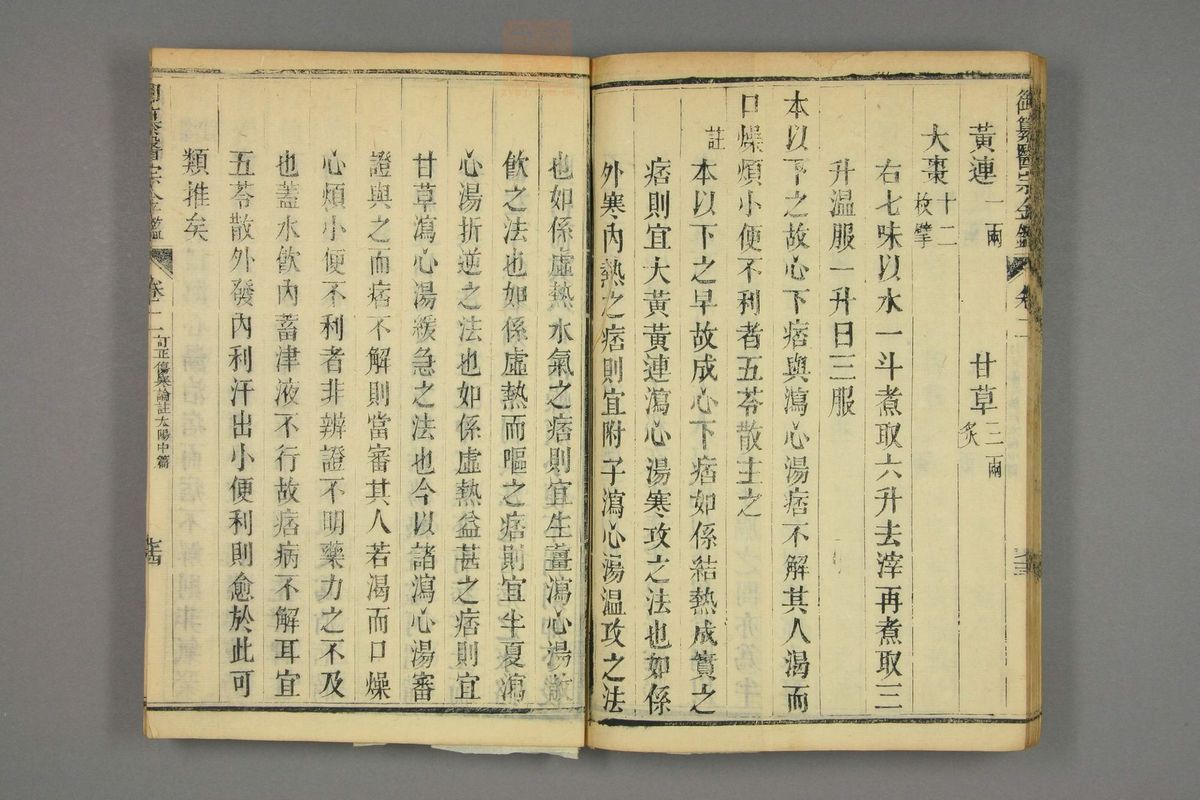 御纂醫宗金鑑 卷二
黃連一兩 甘草三兩炙
大棗十二枚擘
右七味以水一斗煮取六升去滓再煮取三
升溫服一升日三服
本以下之故心下痞與瀉心湯痞不解其人渴而
口燥煩小便不利者五苓散主之
註本以下之早故成心下痞如係結熱成實之
痞則宜大黃黃連瀉心湯寒攻之法也如係
外寒內熱之痞則宜附子瀉心湯溫攻之法
也如係虛熱水氣之痞則宜生薑瀉心湯散
飲之法也如係虛熱而嘔之痞則宜半夏瀉
心湯折逆之法也如係虛熱益甚之痞則宜
甘草瀉心湯緩急之法也今以諸瀉心湯審
證與之而痞不解則當審其人若渴而口燥
心煩小便不利者非辨證不明藥力之不及
也蓋水飲內蓄津液不行故痞病不解耳宜
五苓散外發內利汗出小便利則愈於此可
類推矣
御纂醫宗金鑑 卷二 訂正傷寒論註太陽中篇